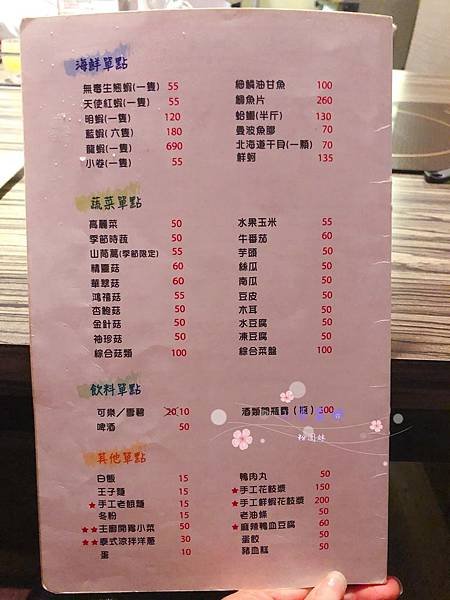 海鮮單點
無毒生態蝦(一隻) 55
天使紅蝦(一隻) 55
明蝦(一隻) 120
藍蝦(六隻) 180
龍蝦(一隻) 690
小卷(一隻) 55
細鱗油甘魚 100
鯛魚片 260
蛤蜊(半斤) 130
曼波魚膠 70
北海道干貝(一顆) 70
鮮蚵 135
蔬菜單點
高麗菜 50
季節時蔬 50
山茼萵(季節限定) 55
精靈菇 60
華翠菇 60
鴻禧菇 55
杏鮑菇 50
金針菇 50
袖珍菇 50
綜合菇類 100
水果玉米 55
牛番茄 60
芋頭 50
絲瓜 50
南瓜 50
豆皮 50
木耳 50
水豆腐 50
凍豆腐 50
綜合菜盤 100
飲料單點
可樂/雪碧 20 10
啤酒 50
酒類開瓶費(瓶) 300
粉圓妹
其他單點
白飯 15
王子麵 15
★手工老麵麵 15
冬粉 15
★★王廚開胃小菜 50
★★泰式涼拌洋蔥 30
蛋 10
鴨肉丸 50
★手工花枝漿 150
★手工鮮蝦花枝漿 200
老油條 50
★麻辣鴨血豆腐 60
蛋餃 50
豬血糕 50